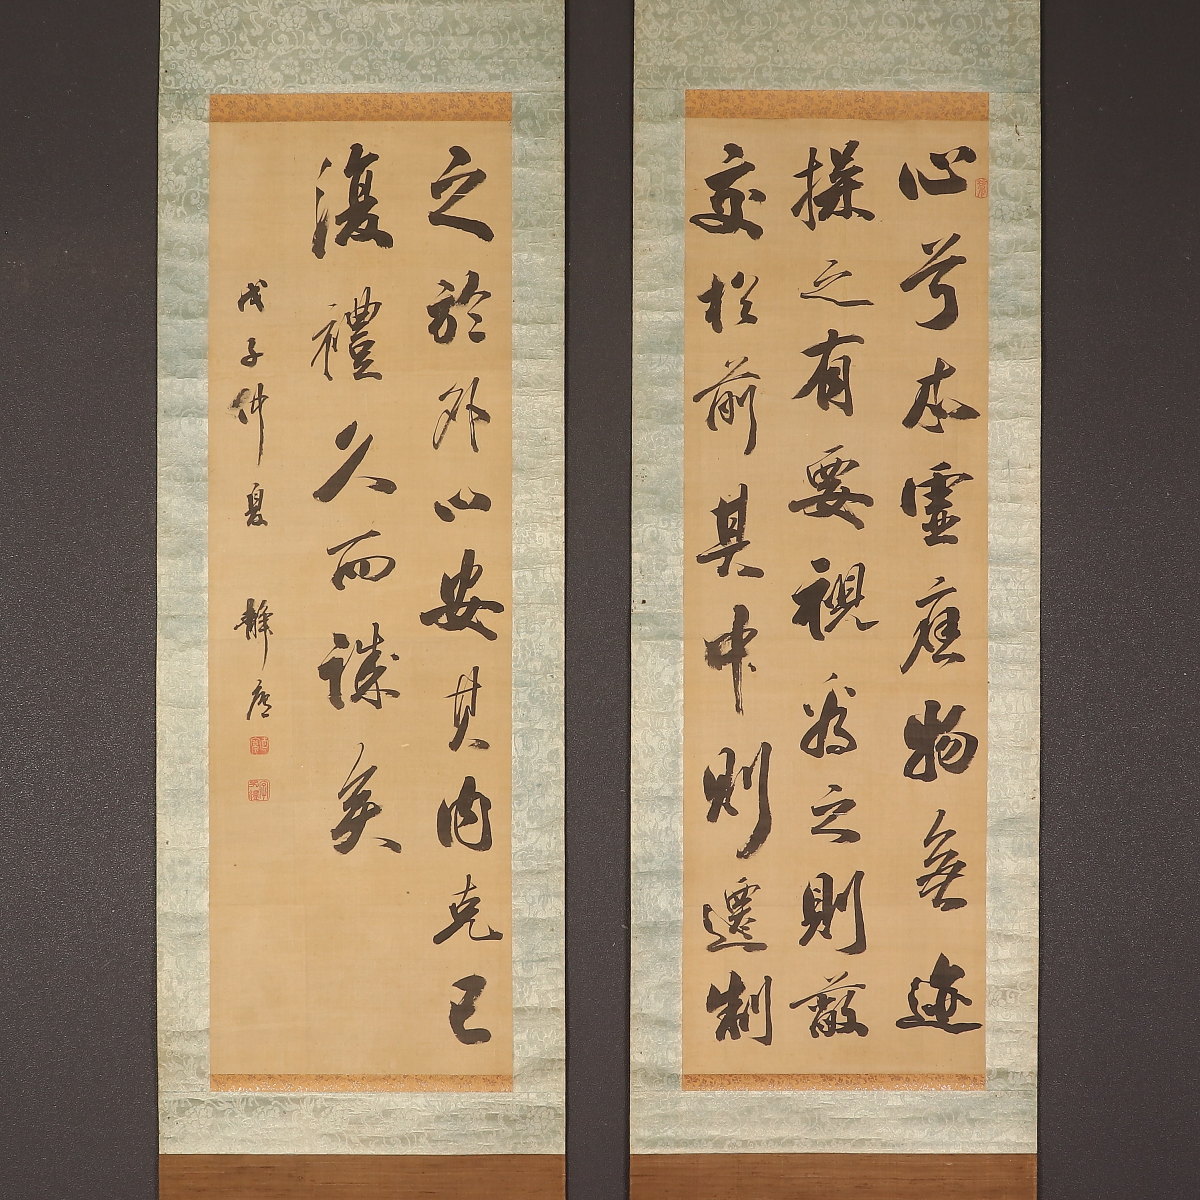 心兮本虛應物無迹
操之有要視為之則蔽
交於前其中則遷制
之於外以安其内克己
復禮久而誠矣
戊子仲夏 靜